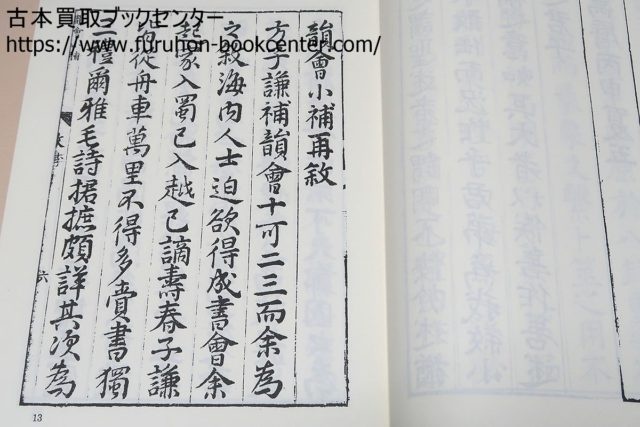 古本買取ブックセンター
https://www.furuhon-bookcenter.com/
韻會小補再敘
方子謙補韻會十可二三而余為
之敘海內人士迫欲得成書會余
起家入蜀已入越已謫壽春子謙
俱從舟車萬里不得多賫書獨
三禮爾雅毛詩捃摭頗詳其次為
六
13